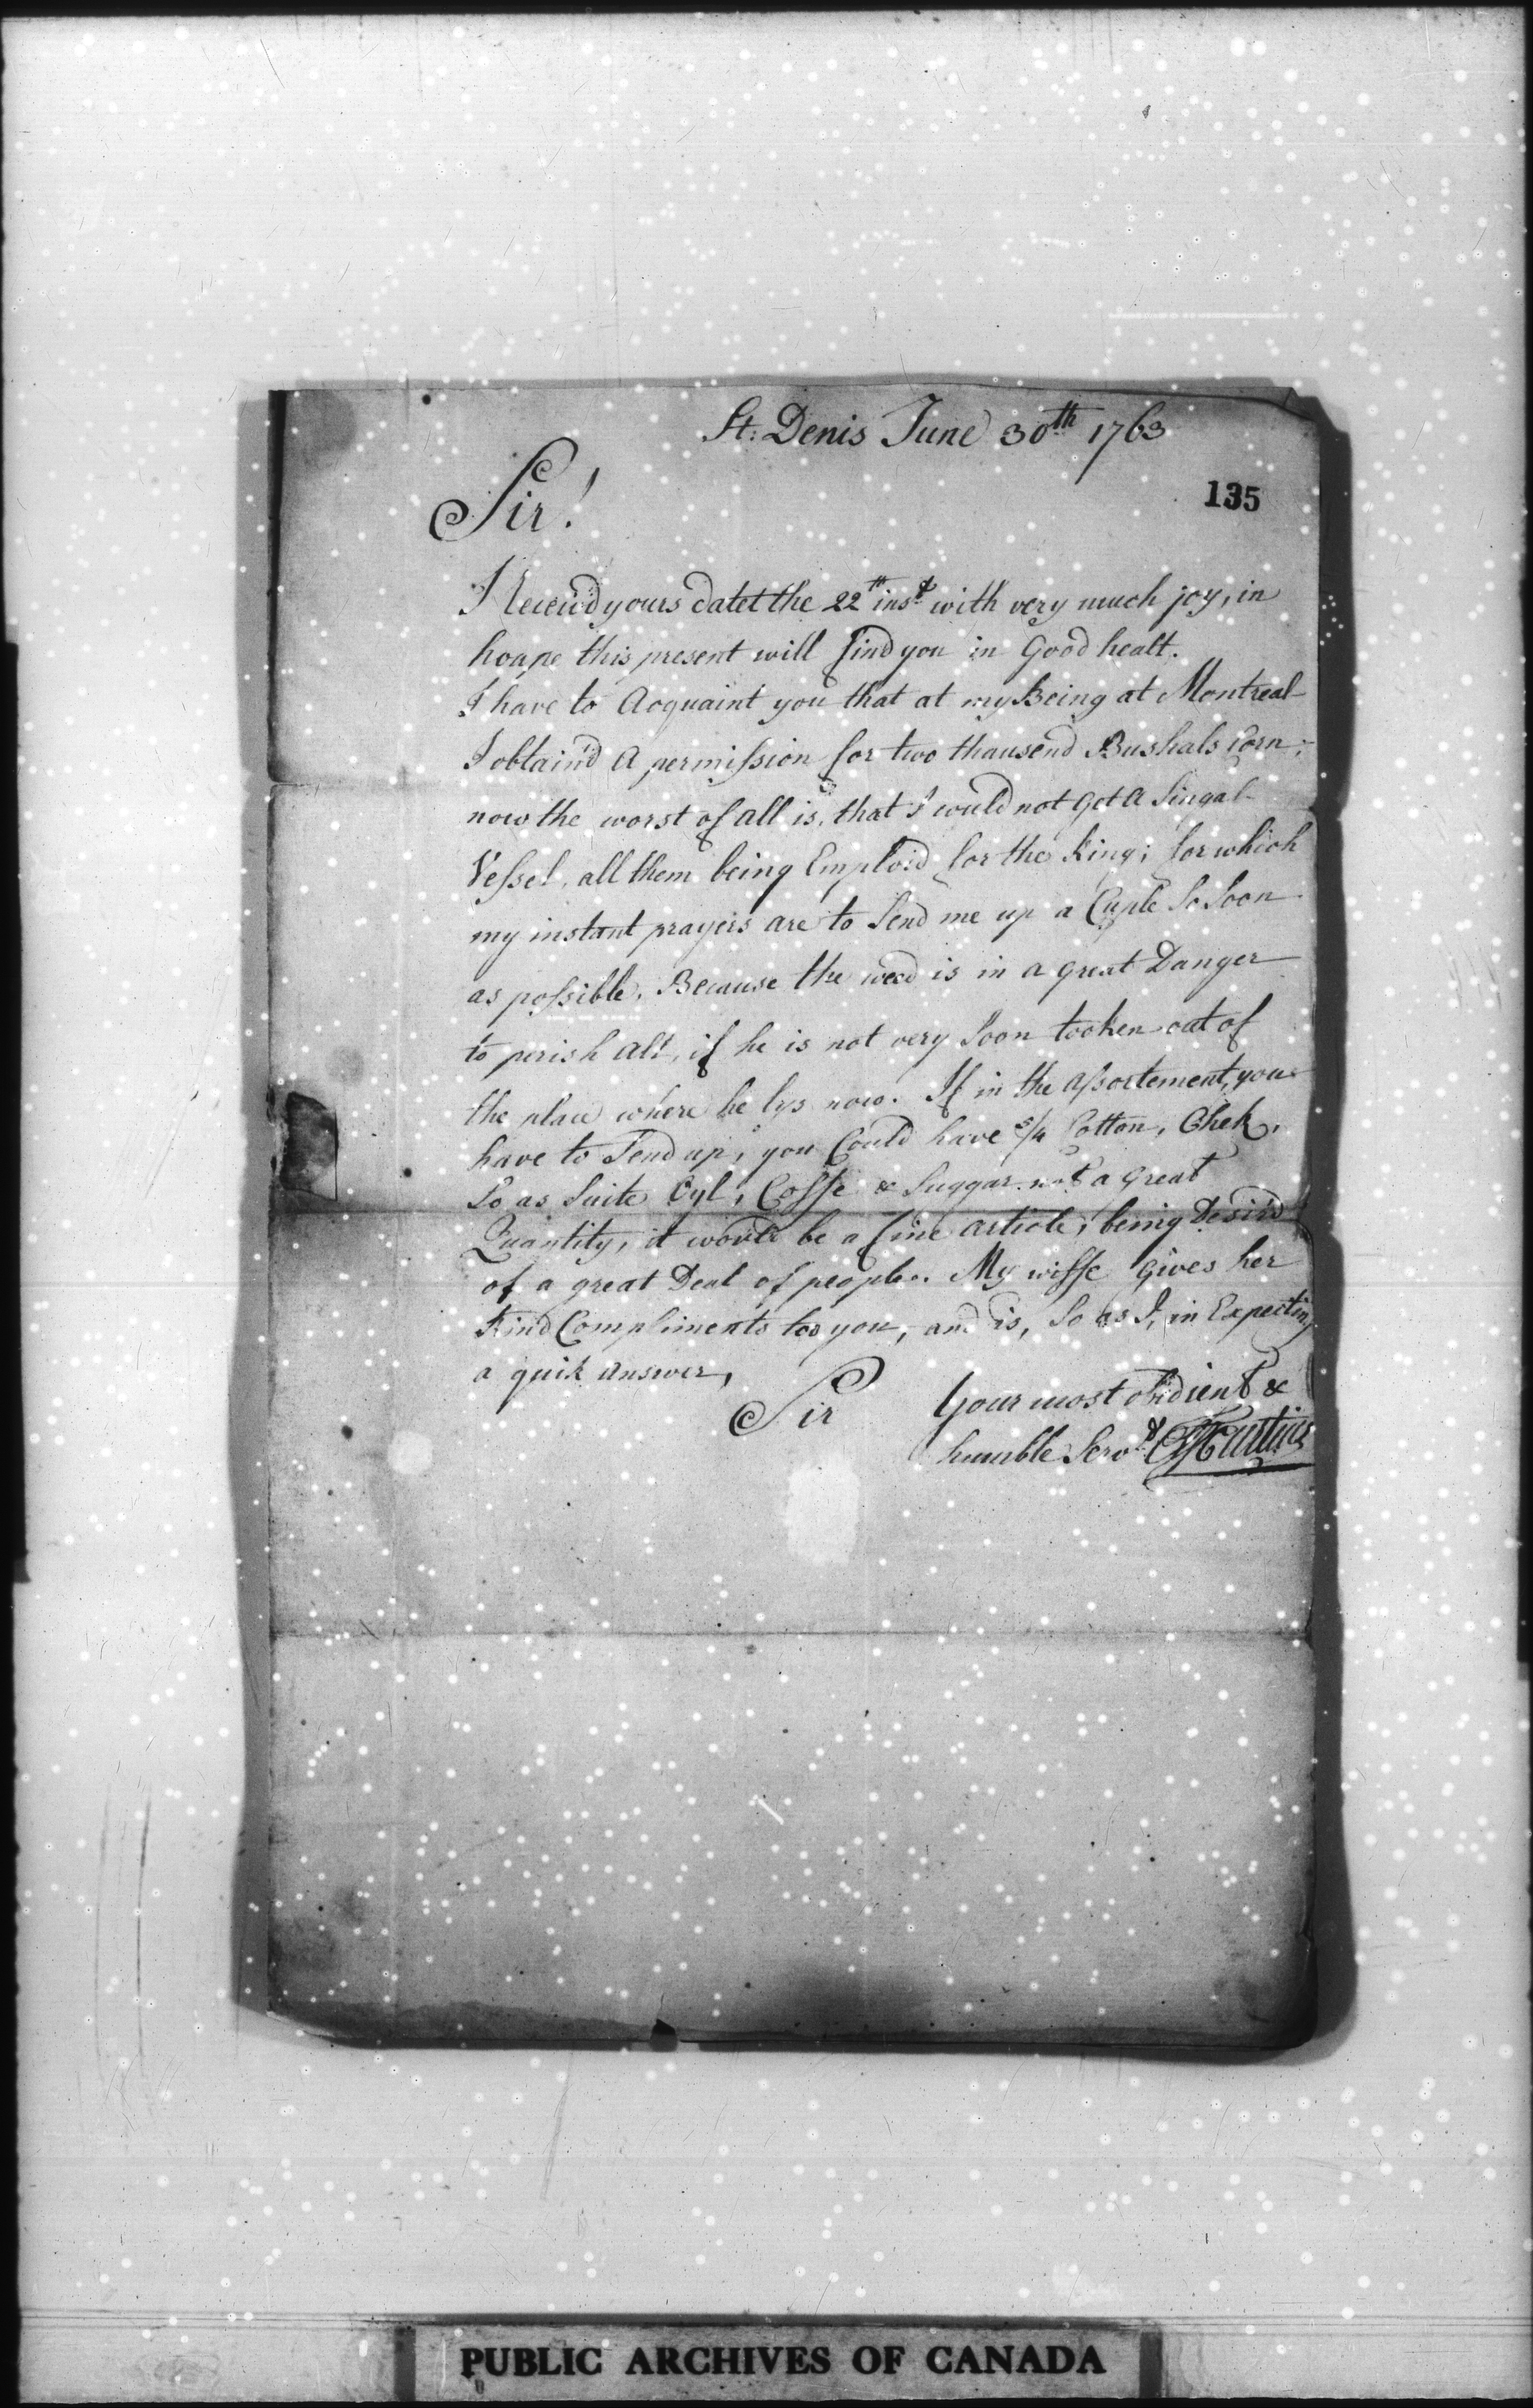 St: Denis June 30th 1763
135
Sir!
I Receiv'd yours datet the 22th inst with very much joy, in
hoape this present will find you in Good healt.
I have to Acquaint you that at my Being at Montreal
I obtain'd A permission for two thausend Bushals Corn;
now the worst of all is, that I would not Get A Singal
Vessel, all them being Emploid for the King; for which
my instant prayers are to Send me up a Cuple So Soon
as possible, Because the weed is in a great Danger
to perish all, if he is not very Soon tooken out of
the place where he lys now. If in the Assortement, you
have to Send up, you Could have 3/4 Cotton, Chek,
So as Suite Oyl, Coffe & Suggar not a great
Quantity, it would be a fine article, being Desir'd
of a great Deal of people. My wiffe Gives her
Kind Compliments too you, and is, So as I, in Expecting
a quik answer,
Sir Your most obidient &
humble Servt
PUBLIC ARCHIVES OF CANADA